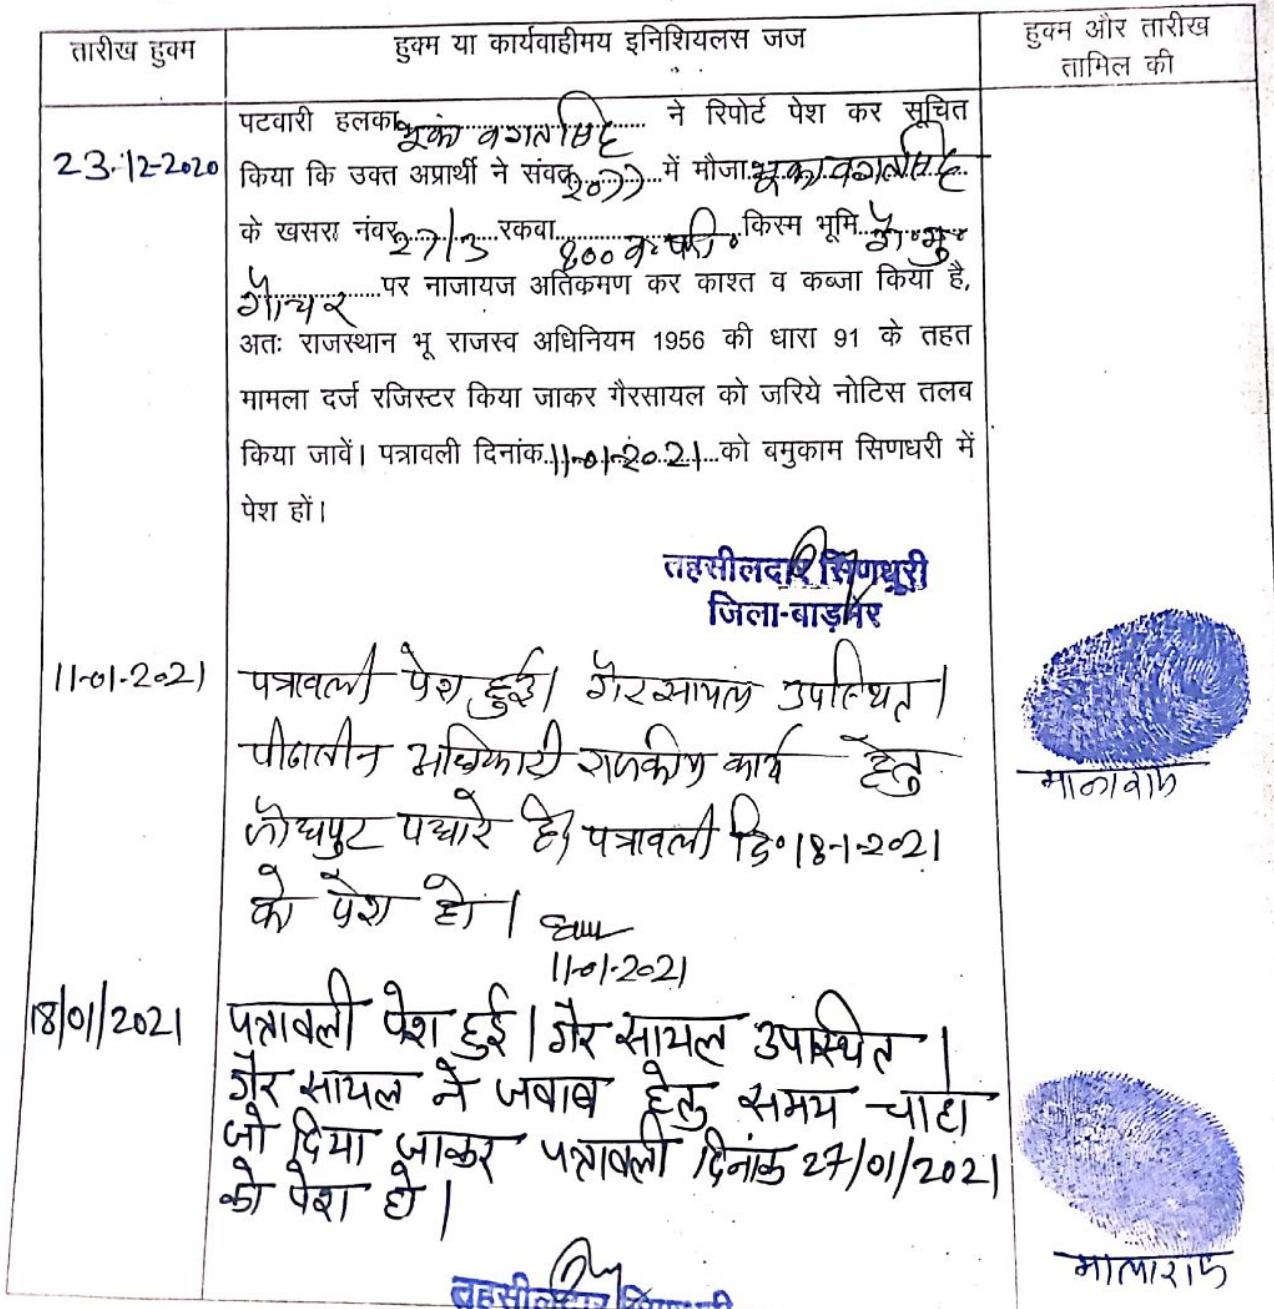 तारीख हुक्म
हुक्म या कार्यवाहीमय इनिशियलस जज
हुक्म और तारीख
तामिल की
23-12-2020
पटवारी हलका भूंका भगतसिंह ने रिपोर्ट पेश कर सूचित
किया कि उक्त अप्रार्थी ने संवत् 2077 में मौजा भूका भगतसिंह
के खसरा नंवर 27/3 रकबा 800 व. फी. किस्म भूमि गै. मु.
गोचर पर नाजायज अतिक्रमण कर काश्त व कब्जा किया है,
अतः राजस्थान भू राजस्व अधिनियम 1956 की धारा 91 के तहत
मामला दर्ज रजिस्टर किया जाकर गैरसायल को जरिये नोटिस तलब
किया जावें। पत्रावली दिनांक 11-01-2021 को बमुकाम सिणधरी में
पेश हों।
तहसीलदार सिणधरी
जिला-बाड़मेर
11-01-2021
पत्रावली पेश हुई। गैरसायल उपस्थित।
पीठासीन अधिकारी राजकीय कार्य हेतु
जोधपुर पधारे है। पत्रावली दि० 18-1-2021
को पेश हो।
11-01-2021
मालाराम
18/01/2021
पत्रावली पेश हुई। गैर सायल उपस्थित।
गैर सायल ने जवाब हेतु समय चाहा
जो दिया जाकर पत्रावली दिनांक 27/01/2021
को पेश हो।
मालाराम
तहसीलदार सिणधरी